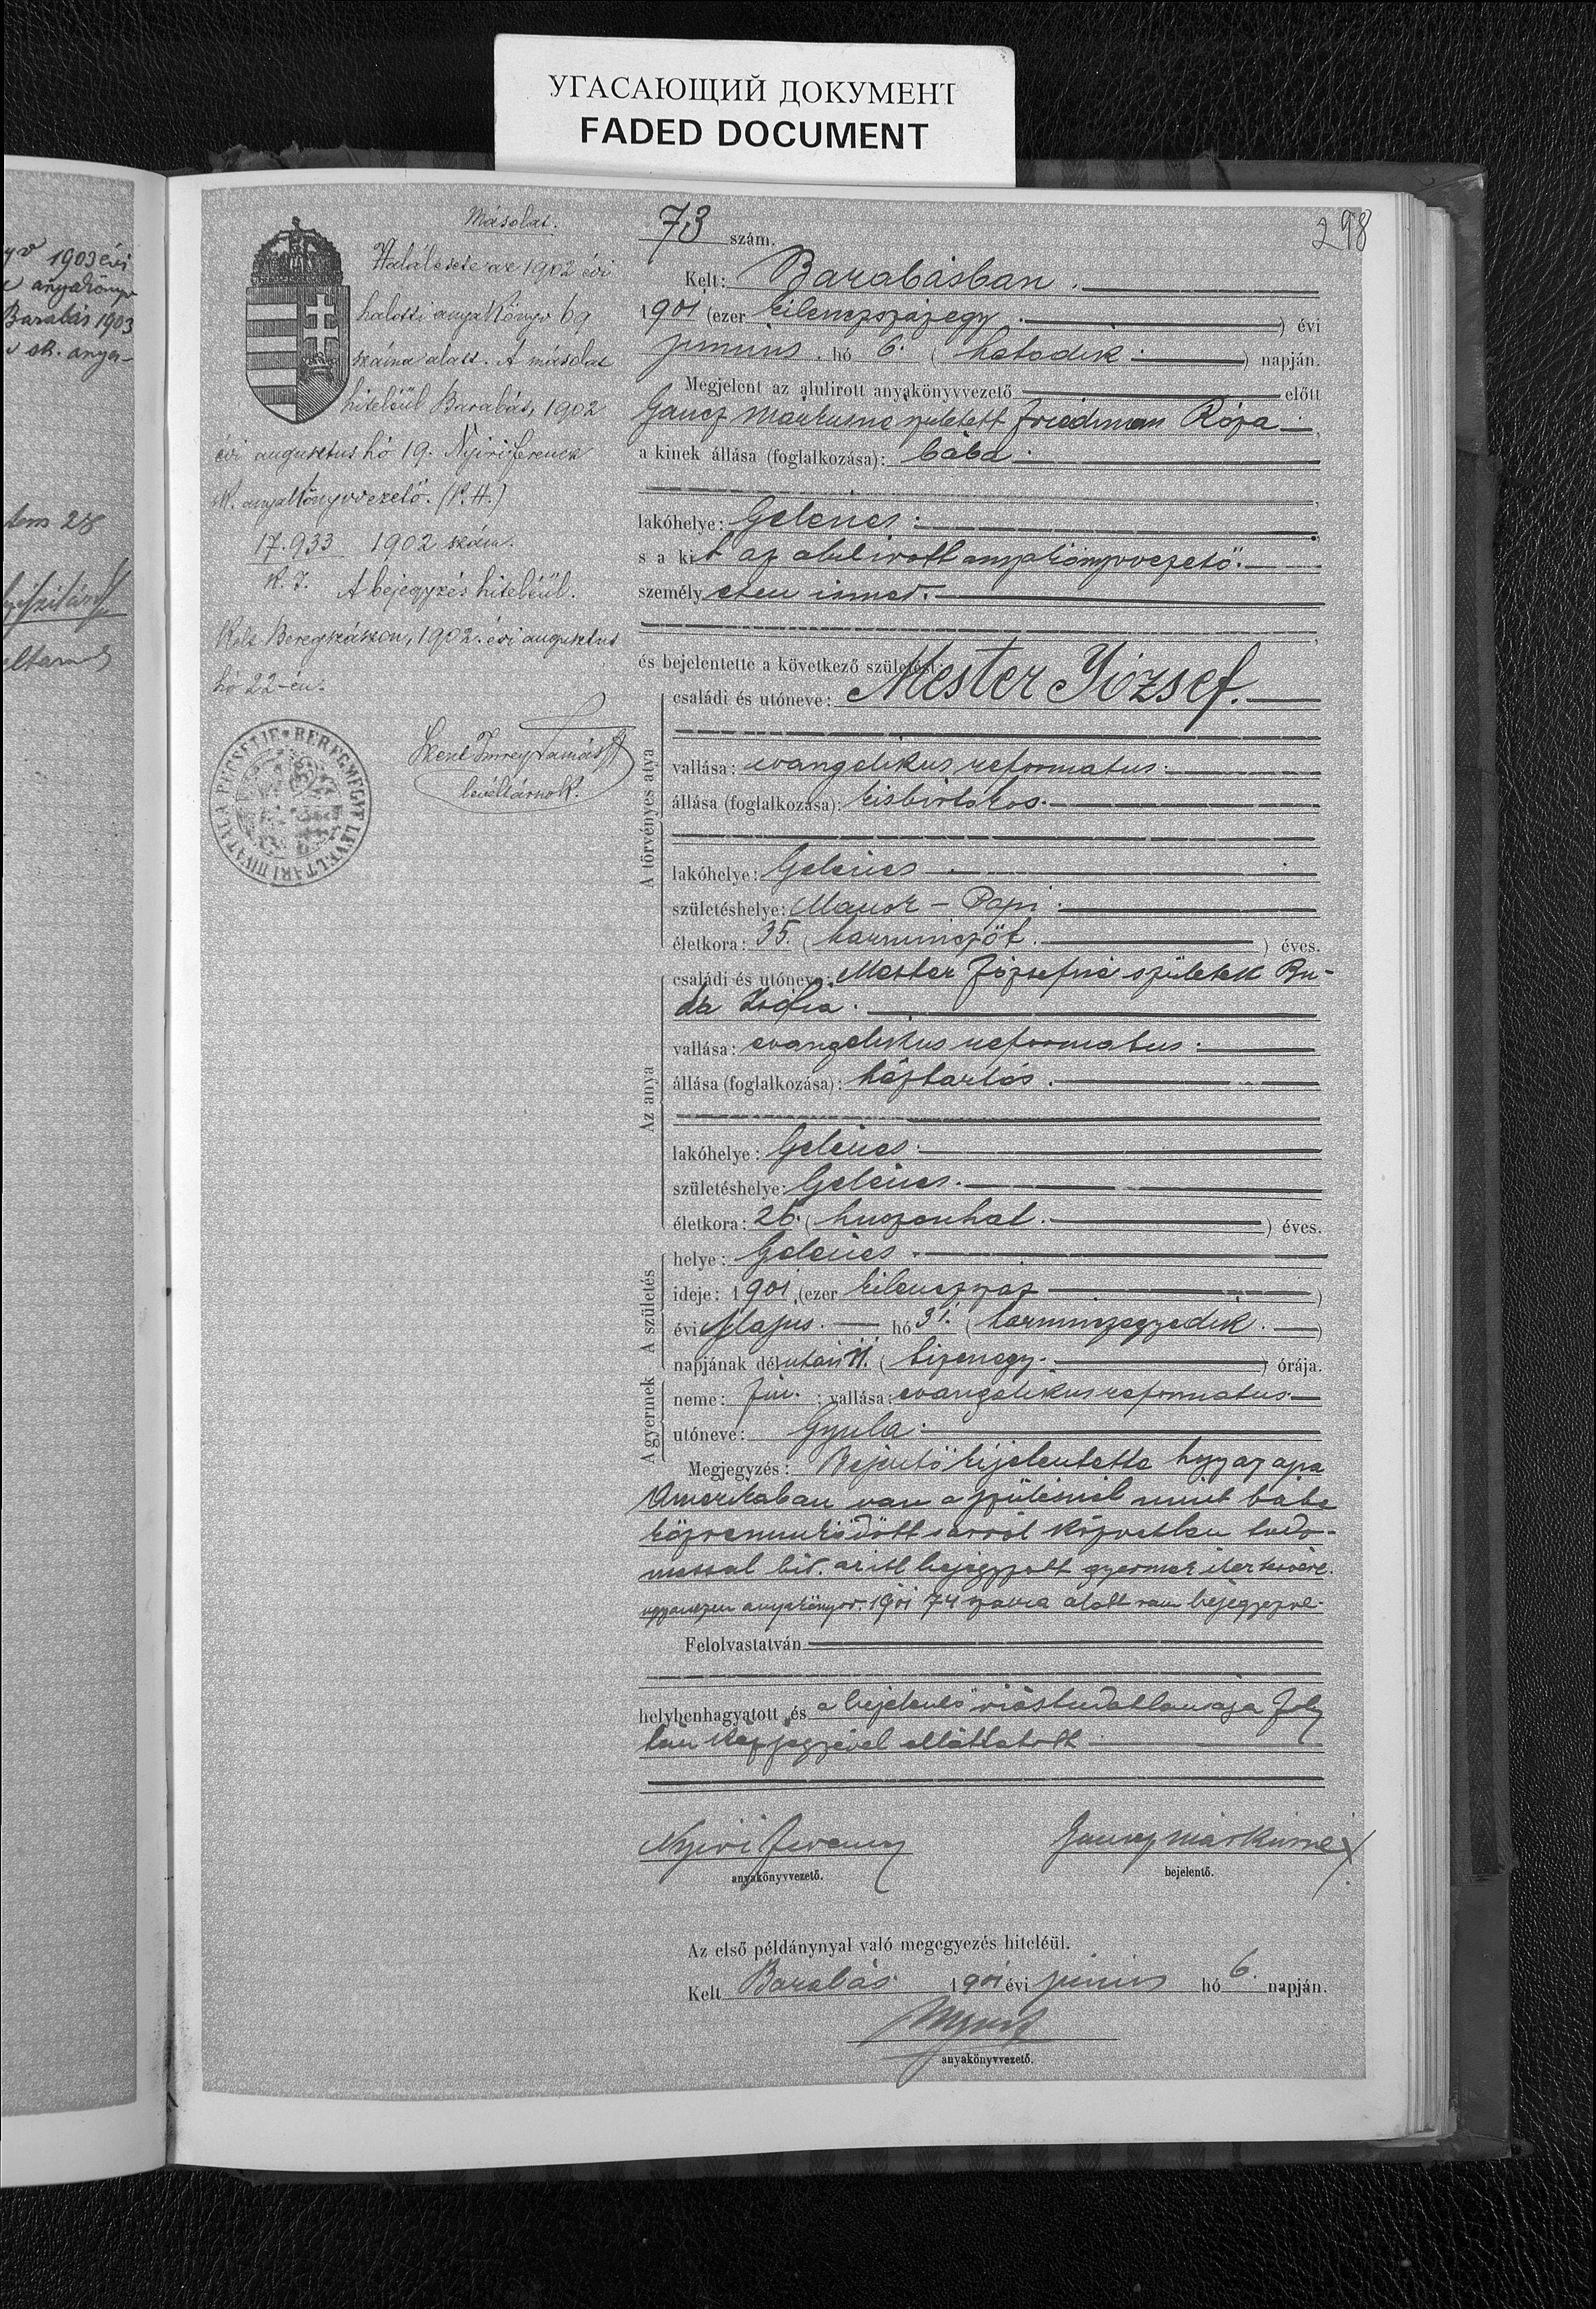 УГАСАЮЩИЙ ДОКУМЕНТ
FADED DOCUMENT
1903 évi
anyakönyv
Barabás 1903
298
Másolat.
Halálesete az 1902 évi
halotti anyakönyv 69
száma alatt. A másolat
hiteléül Barabás, 1902
évi augusztus hó 19. Nyiri Ferencz
K. anyakönyvvezető. (P.H.)
17.933 1902 szám.
A bejegyzés hiteléül.
Kelt Beregszászon, 1902. évi augusztus
hó 22-én.
Szent Imrey Tamás
levéltárnok.
BEREGMEGYE LEVÉLTÁRI HIVATALA PECSÉTJE
73 szám.
Kelt: Barabásban.
1901 (ezer kilenczszázegy) évi
junius hó 6. (hatodik) napján.
Megjelent az alulirott anyakönyvvezető előtt
Gancz Markusné született Friedman Róza
a kinek állása (foglalkozása): bába
lakóhelye: Gelénes
s a kit az alulirott anyakönyvvezető
személyesen ismer.
és bejelentette a következő születést:
A törvényes atya
családi és utóneve: Mester József.
vallása: evangelikus reformatus
állása (foglalkozása): kisbirtokos
lakóhelye: Gelénes
születéshelye: Mátyus - Papi
életkora: 35. (harminczöt) éves.
Az anya
családi és utóneve: Mester Józsefné született Bu-
da Zsófia
vallása: evangelikus reformatus
állása (foglalkozása): háztartás
lakóhelye: Gelénes
születéshelye: Gelénes
életkora: 26. (huszonhat) éves.
A születés
helye: Gelénes
ideje: 1901, (ezer kilenczszáz)
évi Május hó 31. (harminczegyedik)
napjának délután 11. (tizenegy) órája.
A gyermek
neme: fiu. ; vallása: evangelikus reformatus
utóneve: Gyula
Megjegyzés: Bejentő kijelentette hogy az apa
Amerikaban van a szülésnél mint bába
közremüködött s arról közvetlen tudo-
massal bir. az itt bejegyzett gyermek ikertestvére
ugyanezen anyakönyv. 1901 74 száma alatt van bejegyezve.
Felolvastatván
helybenhagyatott és a bejelentő irástudatlansága foly
tán kézjegyével elláttatott
Nyiri Ferencz
anyakönyvvezető.
Gancz Márkusné x
bejelentő.
Az első példánynyal való megegyezés hiteléül.
Kelt Barabás 1901 évi junius hó 6. napján.
Nyiri F
anyakönyvvezető.